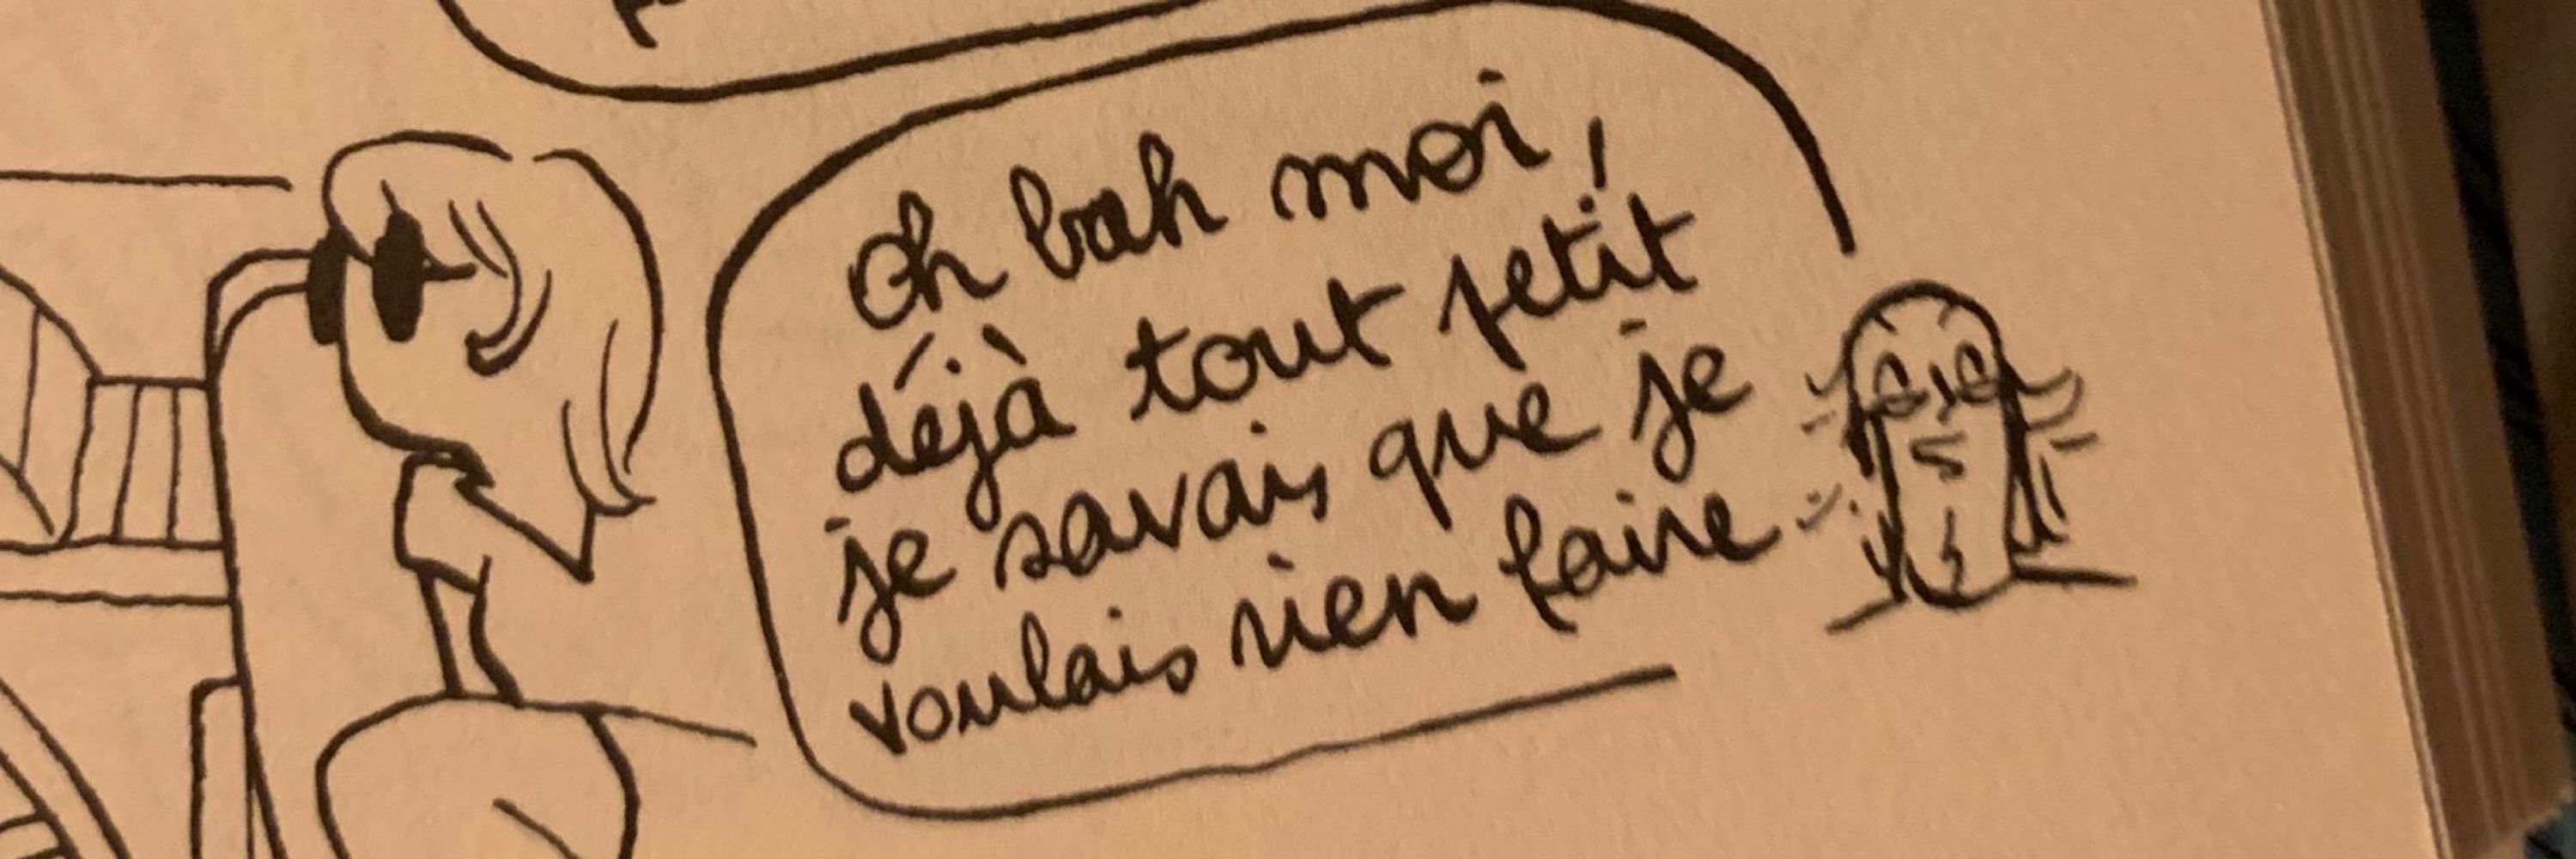 Oh bah moi,
déjà tout petit
je savais que je
voulais rien faire